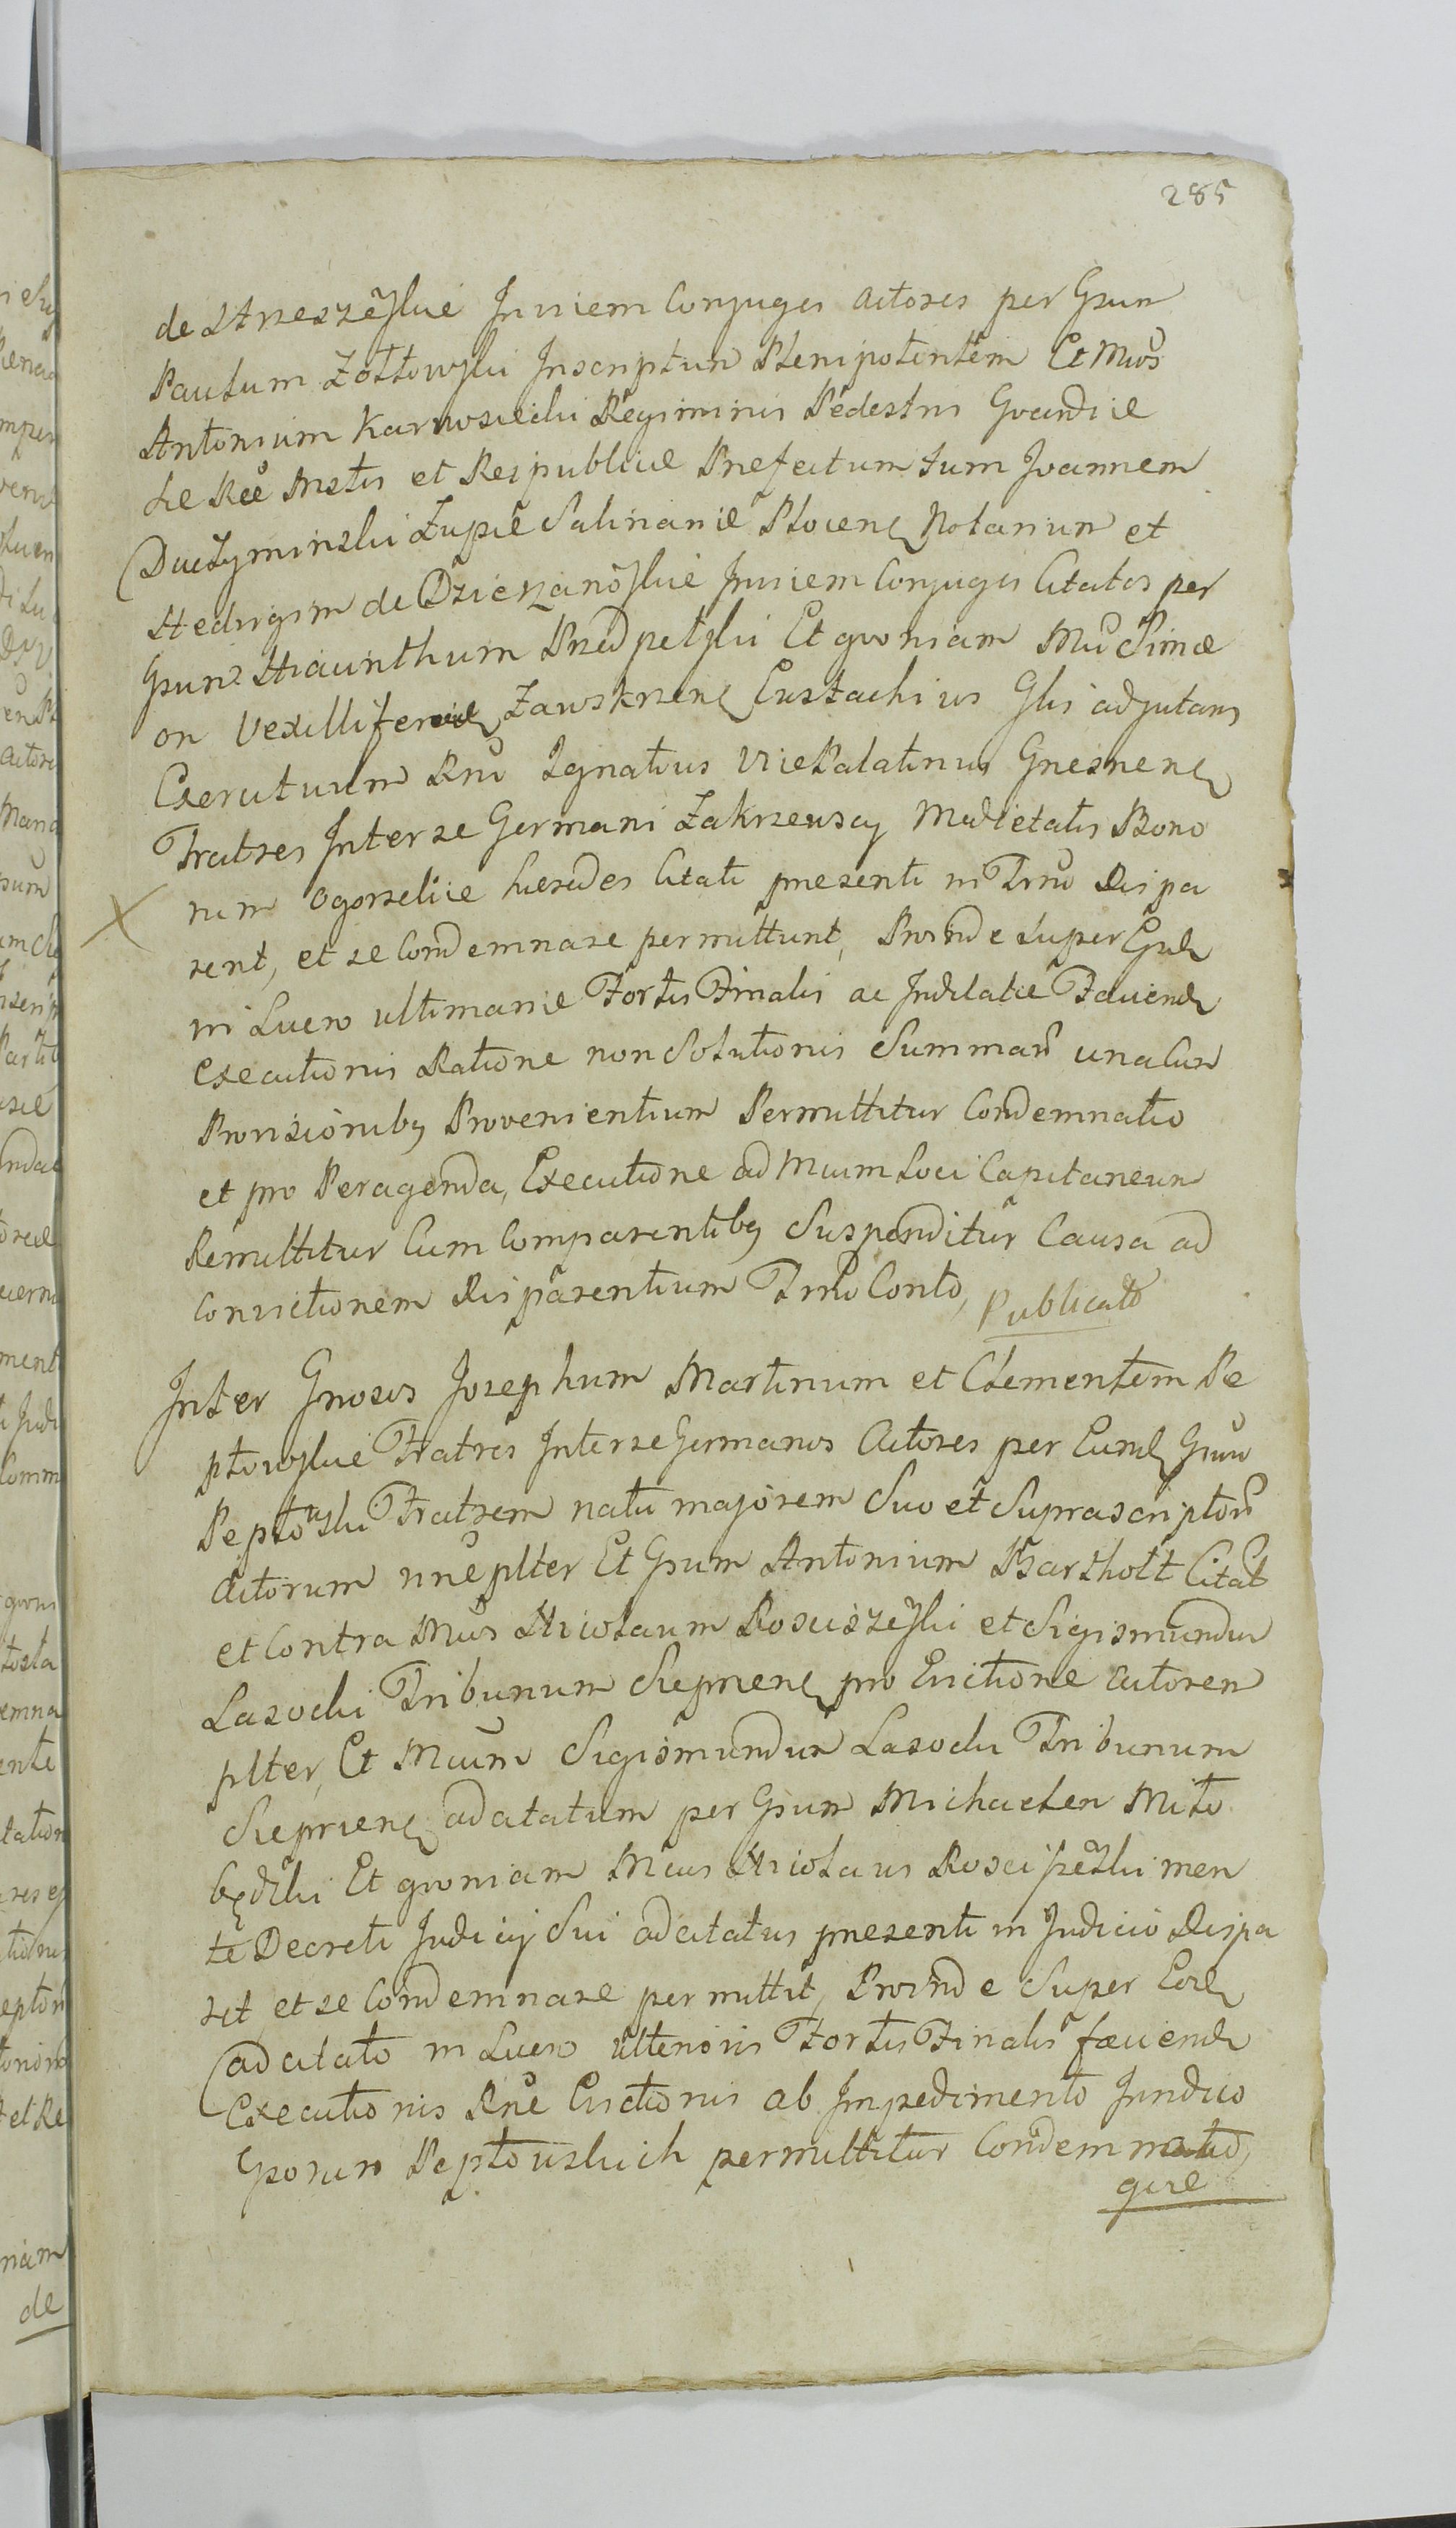 285
de Strzeszewskie Invicem Conjuges Actores per Gsum
Paulum Zołtowski Inscriptum Plenipotentem Et Mcos
Antonium Karwosiecki Regiminis Pedestris Guardiæ
Læ Ræ Mstis et Reipublicæ Præfectum tum Joannem
Duczyminski Zupæ Salinariæ Plocens Notarium et
Hedvigim de Dzierzanowskie Invicem Conjuges Citatos per
Gsum Hiacinthum Przedpełski Et quoniam Mci Sime
on Vexilliferius Zawskrzens Eustachius Glis adjutans
Exercituum Rni Ignatius Vice Palatinus Gnesnens
Fratres Inter se Germani Zakrzewscy Medietatis Bono
rum Ogorzelice hæredes Citati præsenti in Trno Dispa
rent, et se Condemnare permittunt, Proinde super Eisd
in Lucro ultimariæ Fortis Finalis ac Indilatæ Faciend
Executionis Ratione non Solutionis Summarū una Cum
Provisionibq Provenientium Permittitur Condemnatio
et pro Peragenda, Executione ad Mcum Loci Capitaneum
Remittitur Cum Comparentibq Suspenditur Causa ad
Convictionem Disparentium Trno Conto, Publicato
Inter Gnosos Josephum Martinum et Clementem Pe
ptowskie Fratres Inter se Germanos Actores per Eund Gnum
Peptowski Fratrem natu majorem Suo et Suprascriptorū
Actorum nne plter Et Gsum Antonium Bartholt Citat
et Contra Mcos Nicolaum Rosciszewski et Sigismundum
Lasocki Tribunum Sieprcens pro Evictione Actorem
plter, Et Mcum Sigismundum Lasocki Tribunum
Sieprcens adcitatum per Gsum Michaelem Mito
będzki Et quoniam Mcus Nicolaus Rosciszewski men
te Decreti Judicij Sui adcitatus præsenti in Judicio Dispa
ret et se Condemnare permittit, Proinde Super Eod
adcitato in Lucro Ulterioris Fortis Finalis faciend
Executionis Rne Evictionis ab Impedimento Juridico
Gsorum Peptowskich permittitur Condemnatio,
quæ